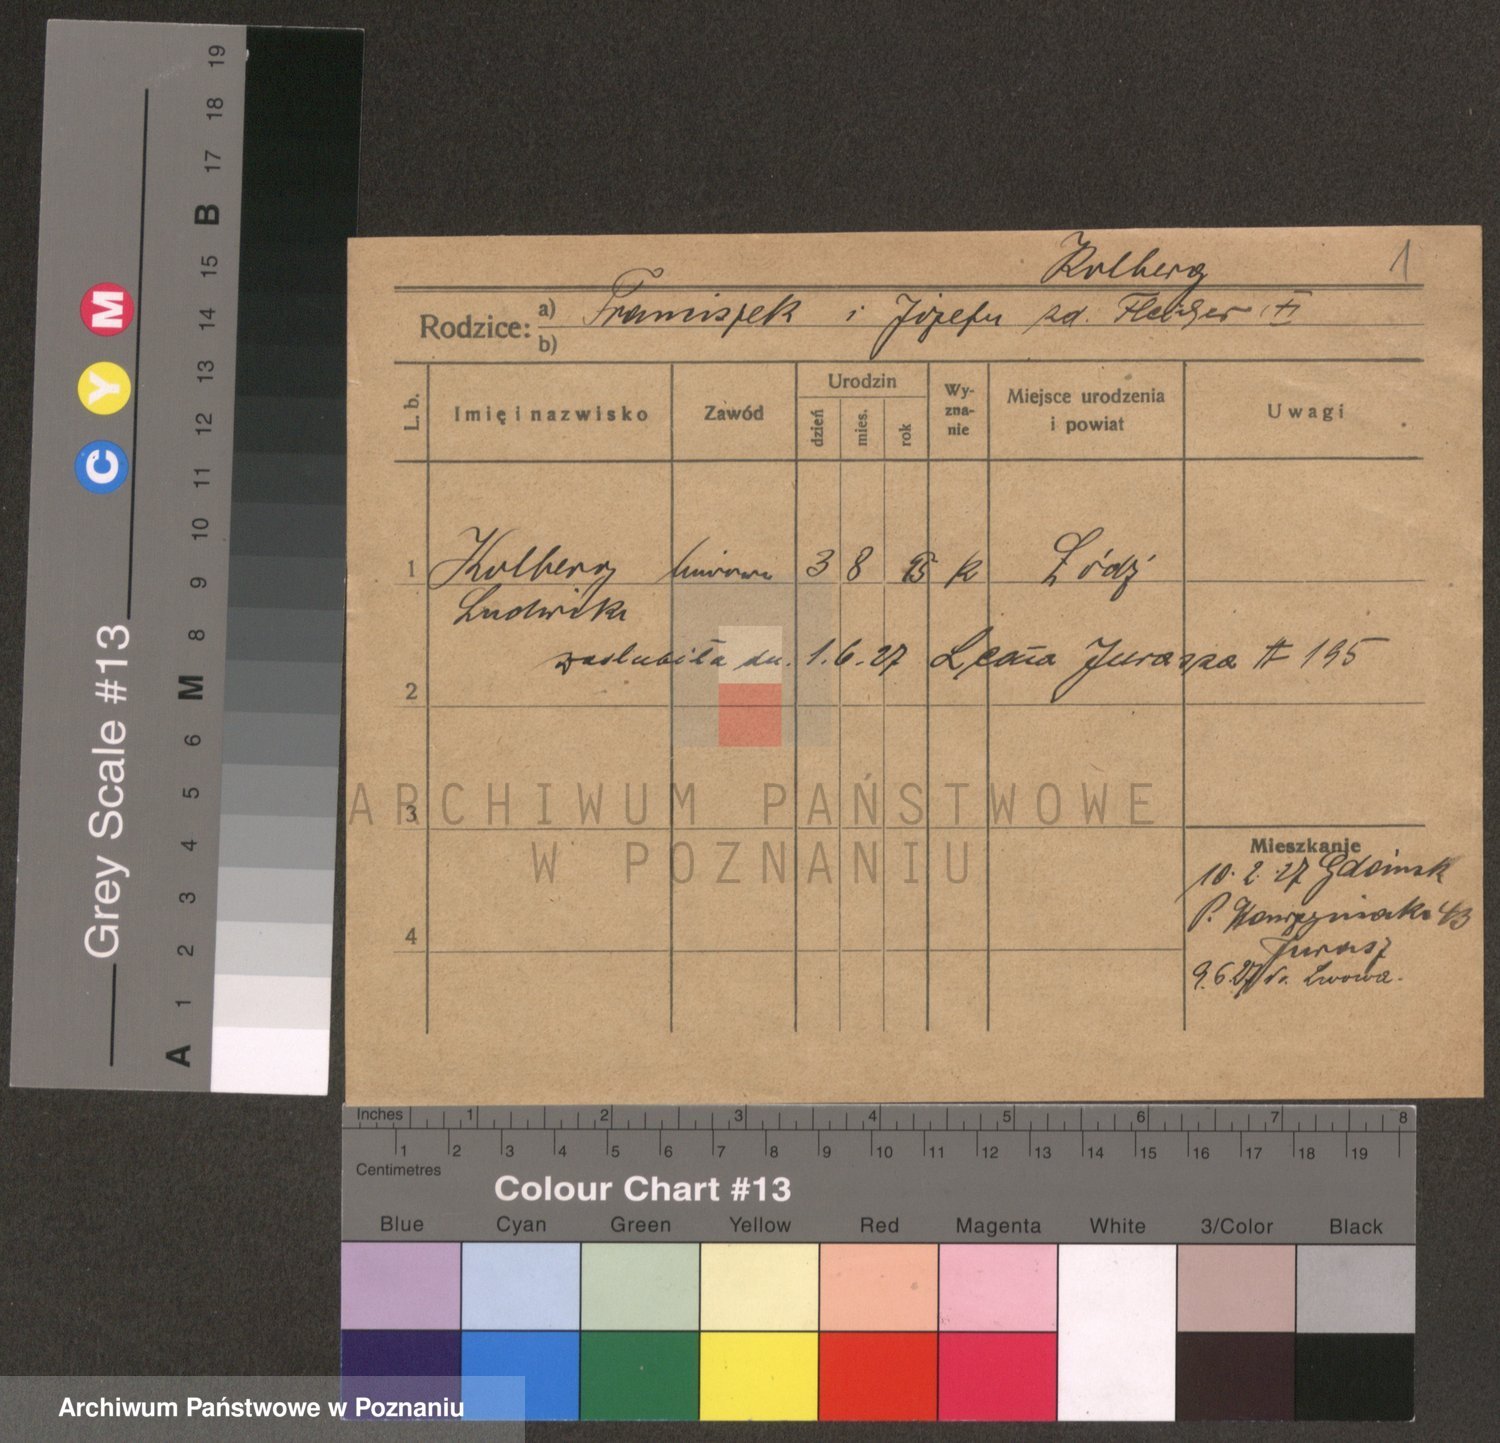 Kolberg 1
Rodzice: a) Franciszek i Józefa zd. Fleiger
b)
L. b. Imię i nazwisko Zawód Urodzin dzień mies. rok Wyznanie Miejsce urodzenia i powiat Uwagi
1 Kolberg 3 8 k Łódź
Ludwika
zaślubiła dn. 1.6.27 Leona Jurasza # 195
2
3
4
Mieszkanie
10.2.27 Gdańsk
P. Wawrzyniaka 43
Jurasz
9.6.27 do Lwowa.
ARCHIWUM PAŃSTWOWE
W POZNANIU
Grey Scale #13
C Y M
A 1 2 3 4 5 6 M 8 9 10 11 12 13 14 15 B 17 18 19
Inches 1 2 3 4 5 6 7 8
1 2 3 4 5 6 7 8 9 10 11 12 13 14 15 16 17 18 19
Centimetres
Colour Chart #13
Blue Cyan Green Yellow Red Magenta White 3/Color Black
Archiwum Państwowe w Poznaniu